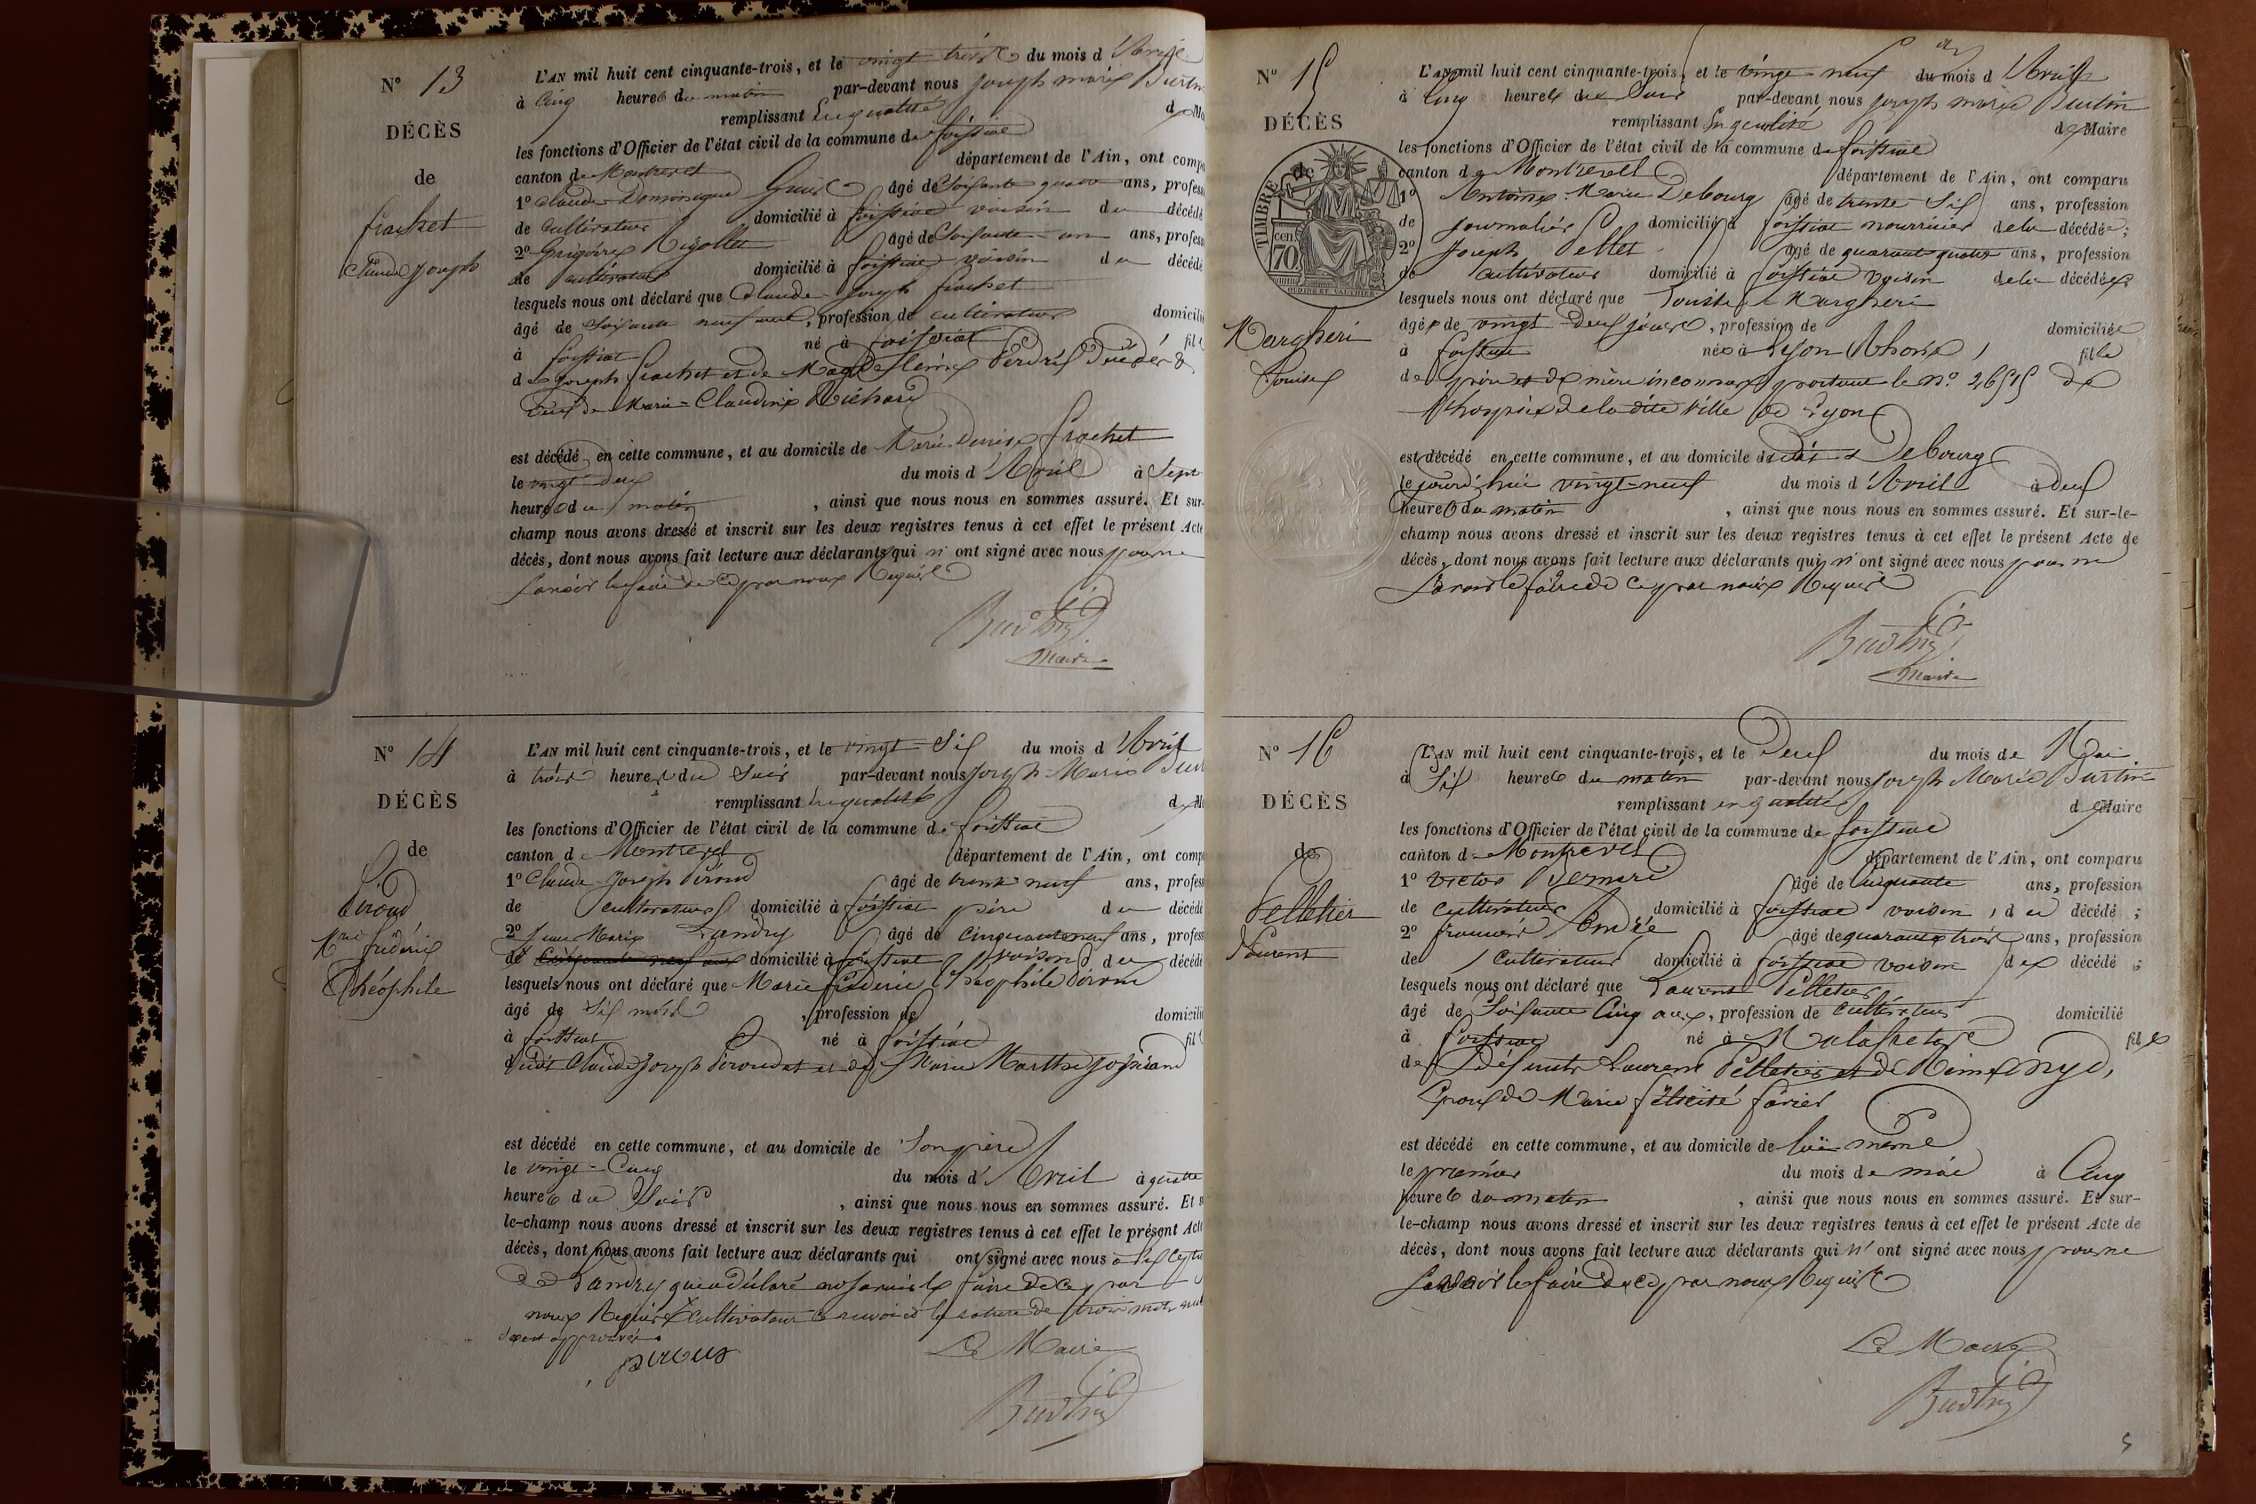 N° 13
DÉCÈS
de
frachet
Claude Joseph
L'AN mil huit cent cinquante-trois, et le vingt trois du mois d'Avril
à cinq heures du matin par-devant nous Joseph marie
remplissant en qualité de
les fonctions d'Officier de l'état civil de la commune de foissiat
canton de Montrevel département de l'Ain, ont
1° Claude Dominique âgé de soixante quatre ans,
de cultivateur domicilié à foissiat voisin du décédé
2° Grégoire Rigollet âgé de soixante un ans,
de cultivateur domicilié à foissiat voisin du décédé
lesquels nous ont déclaré que Claude Joseph frachet
âgé de soixante neuf ans, profession de cultivateur
à foissiat né à foissiat fils
de Joseph frachet et de Magdeleine Perdrix Décédés &
veuf de Marie-Claudine Richard
est décédé en cette commune, et au domicile de Marie Denise frachet
le vingt deux du mois d'Avril à Sept
heures du matin, ainsi que nous nous en sommes assuré. Et sur-
champ nous avons dressé et inscrit sur les deux registres tenus à cet effet le présent Acte
décès, dont nous avons fait lecture aux déclarants qui n'ont signé avec nous pour ne
savoir le faire de ce par nous Requis
Maire
N° 14
DÉCÈS
de
Péroud
Mrie frédéric
Théophile
L'AN mil huit cent cinquante-trois, et le vingt Six du mois d'Avril
à trois heures du Soir par-devant nous Joseph-Marie
remplissant en qualité
les fonctions d'Officier de l'état civil de la commune de foissiat
canton de Montrevel département de l'Ain, ont
1° Claude Joseph Péroud âgé de trente neuf ans,
de cultivateur domicilié à foissiat père du décédé
2° Marie Landry âgé de cinquante neuf ans,
de domicilié à foissiat voisin du décédé
lesquels nous ont déclaré que Marie frédéric Théophile Péroud
âgé de Six mois, profession de
à foissiat né à foissiat fils
dudit Claude Joseph Péroud et de Marie Marthe
est décédé en cette commune, et au domicile de Son père
le vingt-Cinq du mois d'Avril à quatre
heures du Soir, ainsi que nous nous en sommes assuré. Et
le-champ nous avons dressé et inscrit sur les deux registres tenus à cet effet le présent Acte
décès, dont nous avons fait lecture aux déclarants qui ont signé avec nous
Landry qui a déclaré ne savoir le faire de ce par
nous Requis cultivateur de trois mots
approuvé
peroud
Le Maire
N° 15
DÉCÈS
de
TIMBRE
70
Margheri
Louise
L'AN mil huit cent cinquante-trois, et le vingt-neuf du mois d'Avril
à Cinq heures du Soir par-devant nous Joseph marie Burtin
remplissant en qualité de Maire
les fonctions d'Officier de l'état civil de la commune de foissiat
canton de Montrevel département de l'Ain, ont comparu
1° Antoine-Marie Debourg âgé de trente Six ans, profession
de journalier domicilié à foissiat nourricier de la décédée;
2° Joseph Pellet âgé de quarante quatre ans, profession
de cultivateur domicilié à foissiat voisin de la décédée
lesquels nous ont déclaré que Louise Margheri
âgée de vingt-Deux jours, profession de domiciliée
à foissiat née à Lyon Rhône, fille
de père et de mère inconnus portant le N° 2655 de
l'hospice de la dite Ville de Lyon
est décédé en cette commune, et au domicile dudit Debourg
le jourd'hui vingt-neuf du mois d'Avril à deux
heures du matin, ainsi que nous nous en sommes assuré. Et sur-le-
champ nous avons dressé et inscrit sur les deux registres tenus à cet effet le présent Acte de
décès, dont nous avons fait lecture aux déclarants qui n'ont signé avec nous pour ne
Savoir le faire de ce par nous Requis
Maire
N° 16
DÉCÈS
de
Pelletier
Laurent
L'AN mil huit cent cinquante-trois, et le Deux du mois de Mai
à Six heures du matin par-devant nous Joseph Marie Burtin
remplissant en qualité de Maire
les fonctions d'Officier de l'état civil de la commune de foissiat
canton de Montrevel département de l'Ain, ont comparu
1° victor âgé de Cinquante ans, profession
de cultivateur domicilié à foissiat voisin, du décédé;
2° André âgé de quarante trois ans, profession
de cultivateur domicilié à foissiat voisin du décédé;
lesquels nous ont déclaré que Laurent Pelletier
âgé de Soixante Cinq ans, profession de Cultivateur domicilié
à foissiat né à Malafretaz fils
de défunts Laurent Pelletier et de
Epoux de Marie félicité
est décédé en cette commune, et au domicile de lui même
le premier du mois de mai à Cinq
heures du matin, ainsi que nous nous en sommes assuré. Et sur-
le-champ nous avons dressé et inscrit sur les deux registres tenus à cet effet le présent Acte de
décès, dont nous avons fait lecture aux déclarants qui n'ont signé avec nous pour ne
savoir le faire de ce par nous Requis
Le Maire
5